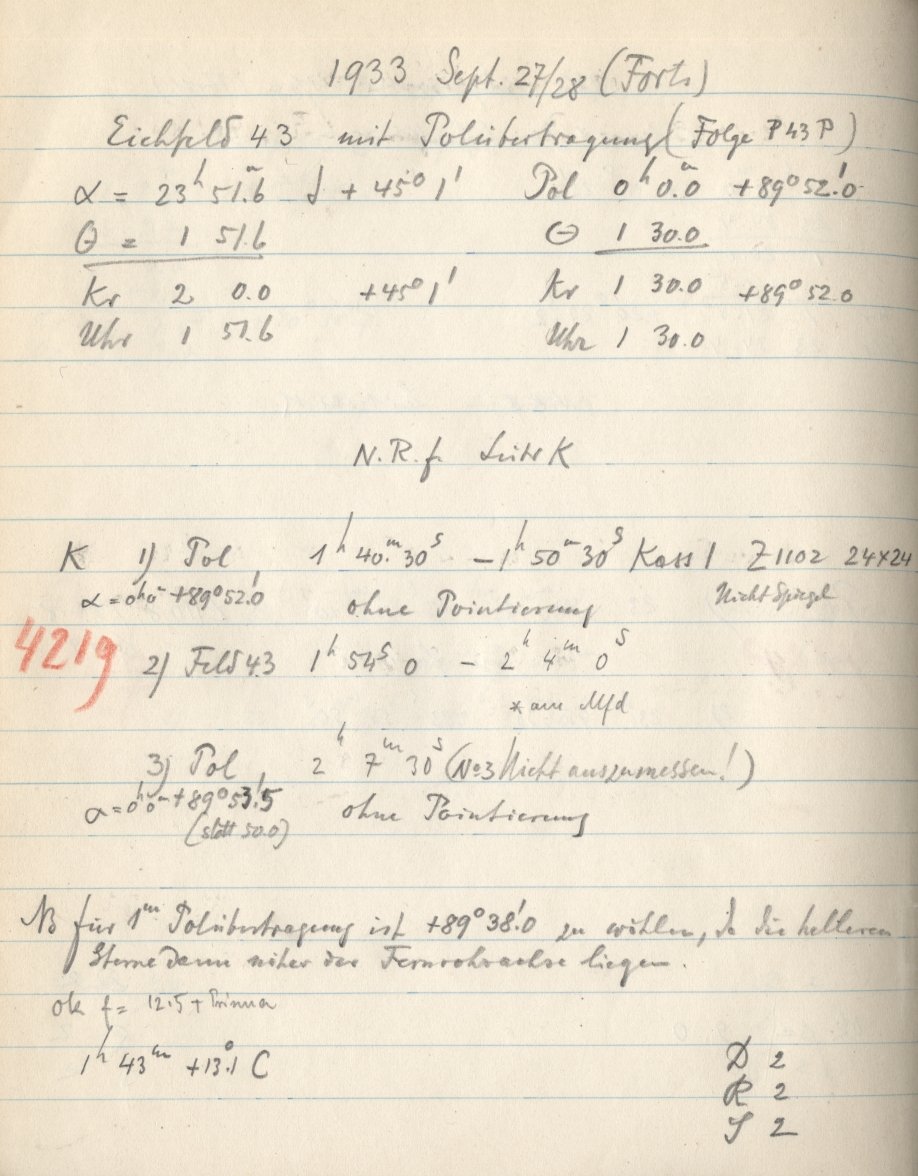 1933 Sept. 27/28 (Forts)
Eichfeld 43 mit Polübertragung (Folge P 43 P)
α = 23h 51.6m δ + 45° 1' Pol 0h 0.0m +89° 52.'0
Θ = 1 51.6 Θ 1 30.0
Kr 2 0.0 +45° 1' Kr 1 30.0 +89° 52.0
Uhr 1 51.6 Uhr 1 30.0
N.R.f. Seite K
K 1) Pol 1h 40.m 30s – 1h 50m 30s Kass 1 Z 1102 24×24
α = 0h 0m +89° 52.'0 ohne Pointierung Nicht Spiegel
4219
2) Feld 43 1h 54s 0 – 2h 4m 0s
* am Mfd
3) Pol 2h 7m 30s (No 3 Nicht auszumessen!)
α = 0h 0m +89° 53.'5 ohne Pointierung
(statt 50.0)
NB für 1m Polübertragung ist +89° 38.'0 zu wählen, da die helleren
Sterne dann näher der Fernrohrachse liegen.
ok f = 12.5 +
1h 43m +13.°1 C
D 2
R 2
S 2